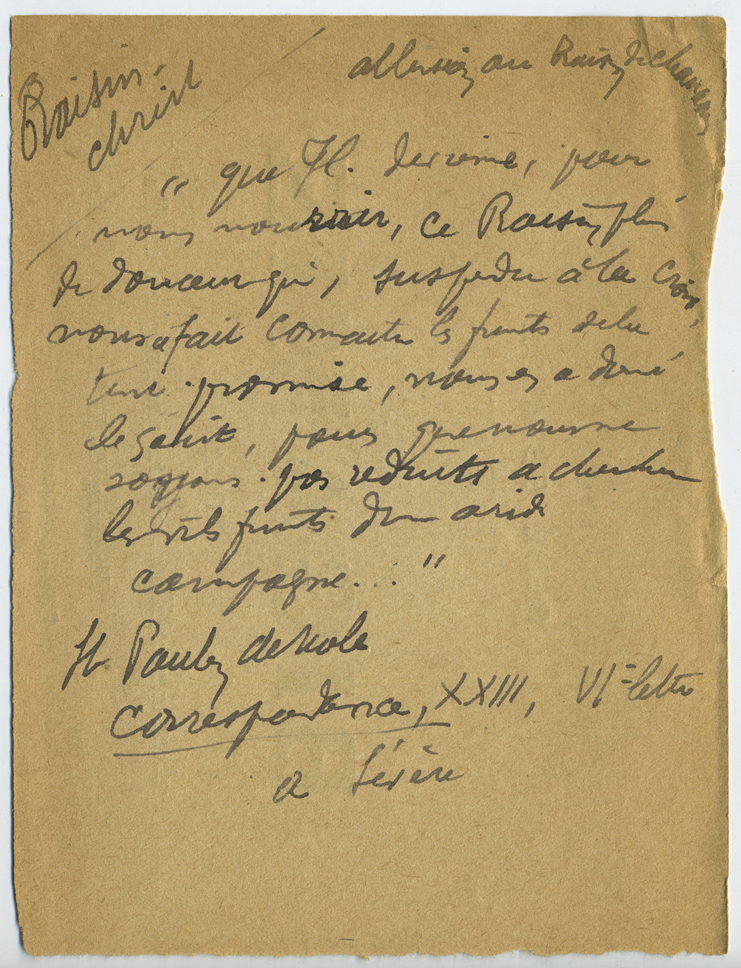 Raisin-
Christ
allusion au Raisin de chanaan
" que St. Jérome, pour
nous nourrir, ce Raisin plein
de douceur qui, suspendu à la Croix,
nous a fait connaitre les fruits de la
terre promise, nous en a donné
le goût, pour que nous ne
soyons pas réduits a chercher
les vils fruits d'un aride
campagne... "
St Paulin de Nole
Correspondance, XXIII, VIe lettre
a Sévère